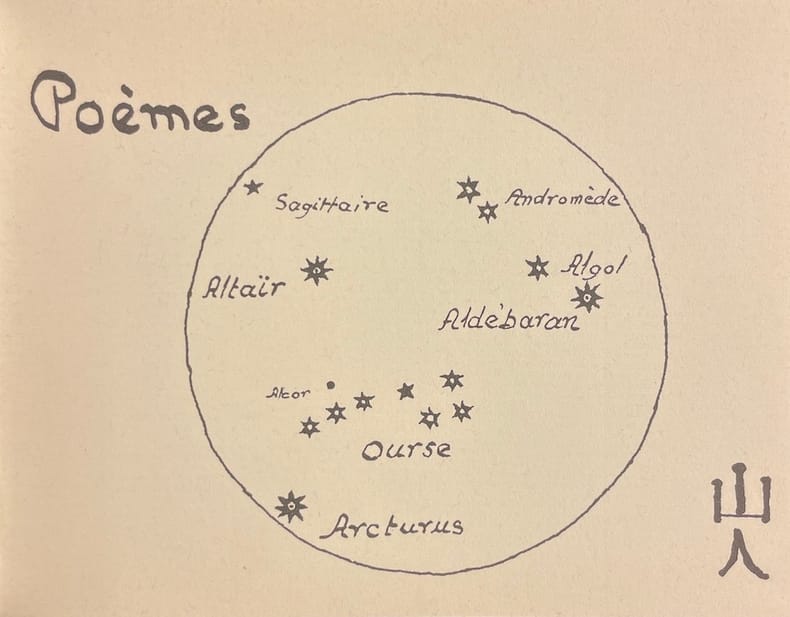 Poèmes
Sagittaire
Andromède
Altaïr
Algol
Aldébaran
Alcor
Ourse
Arcturus
山
人